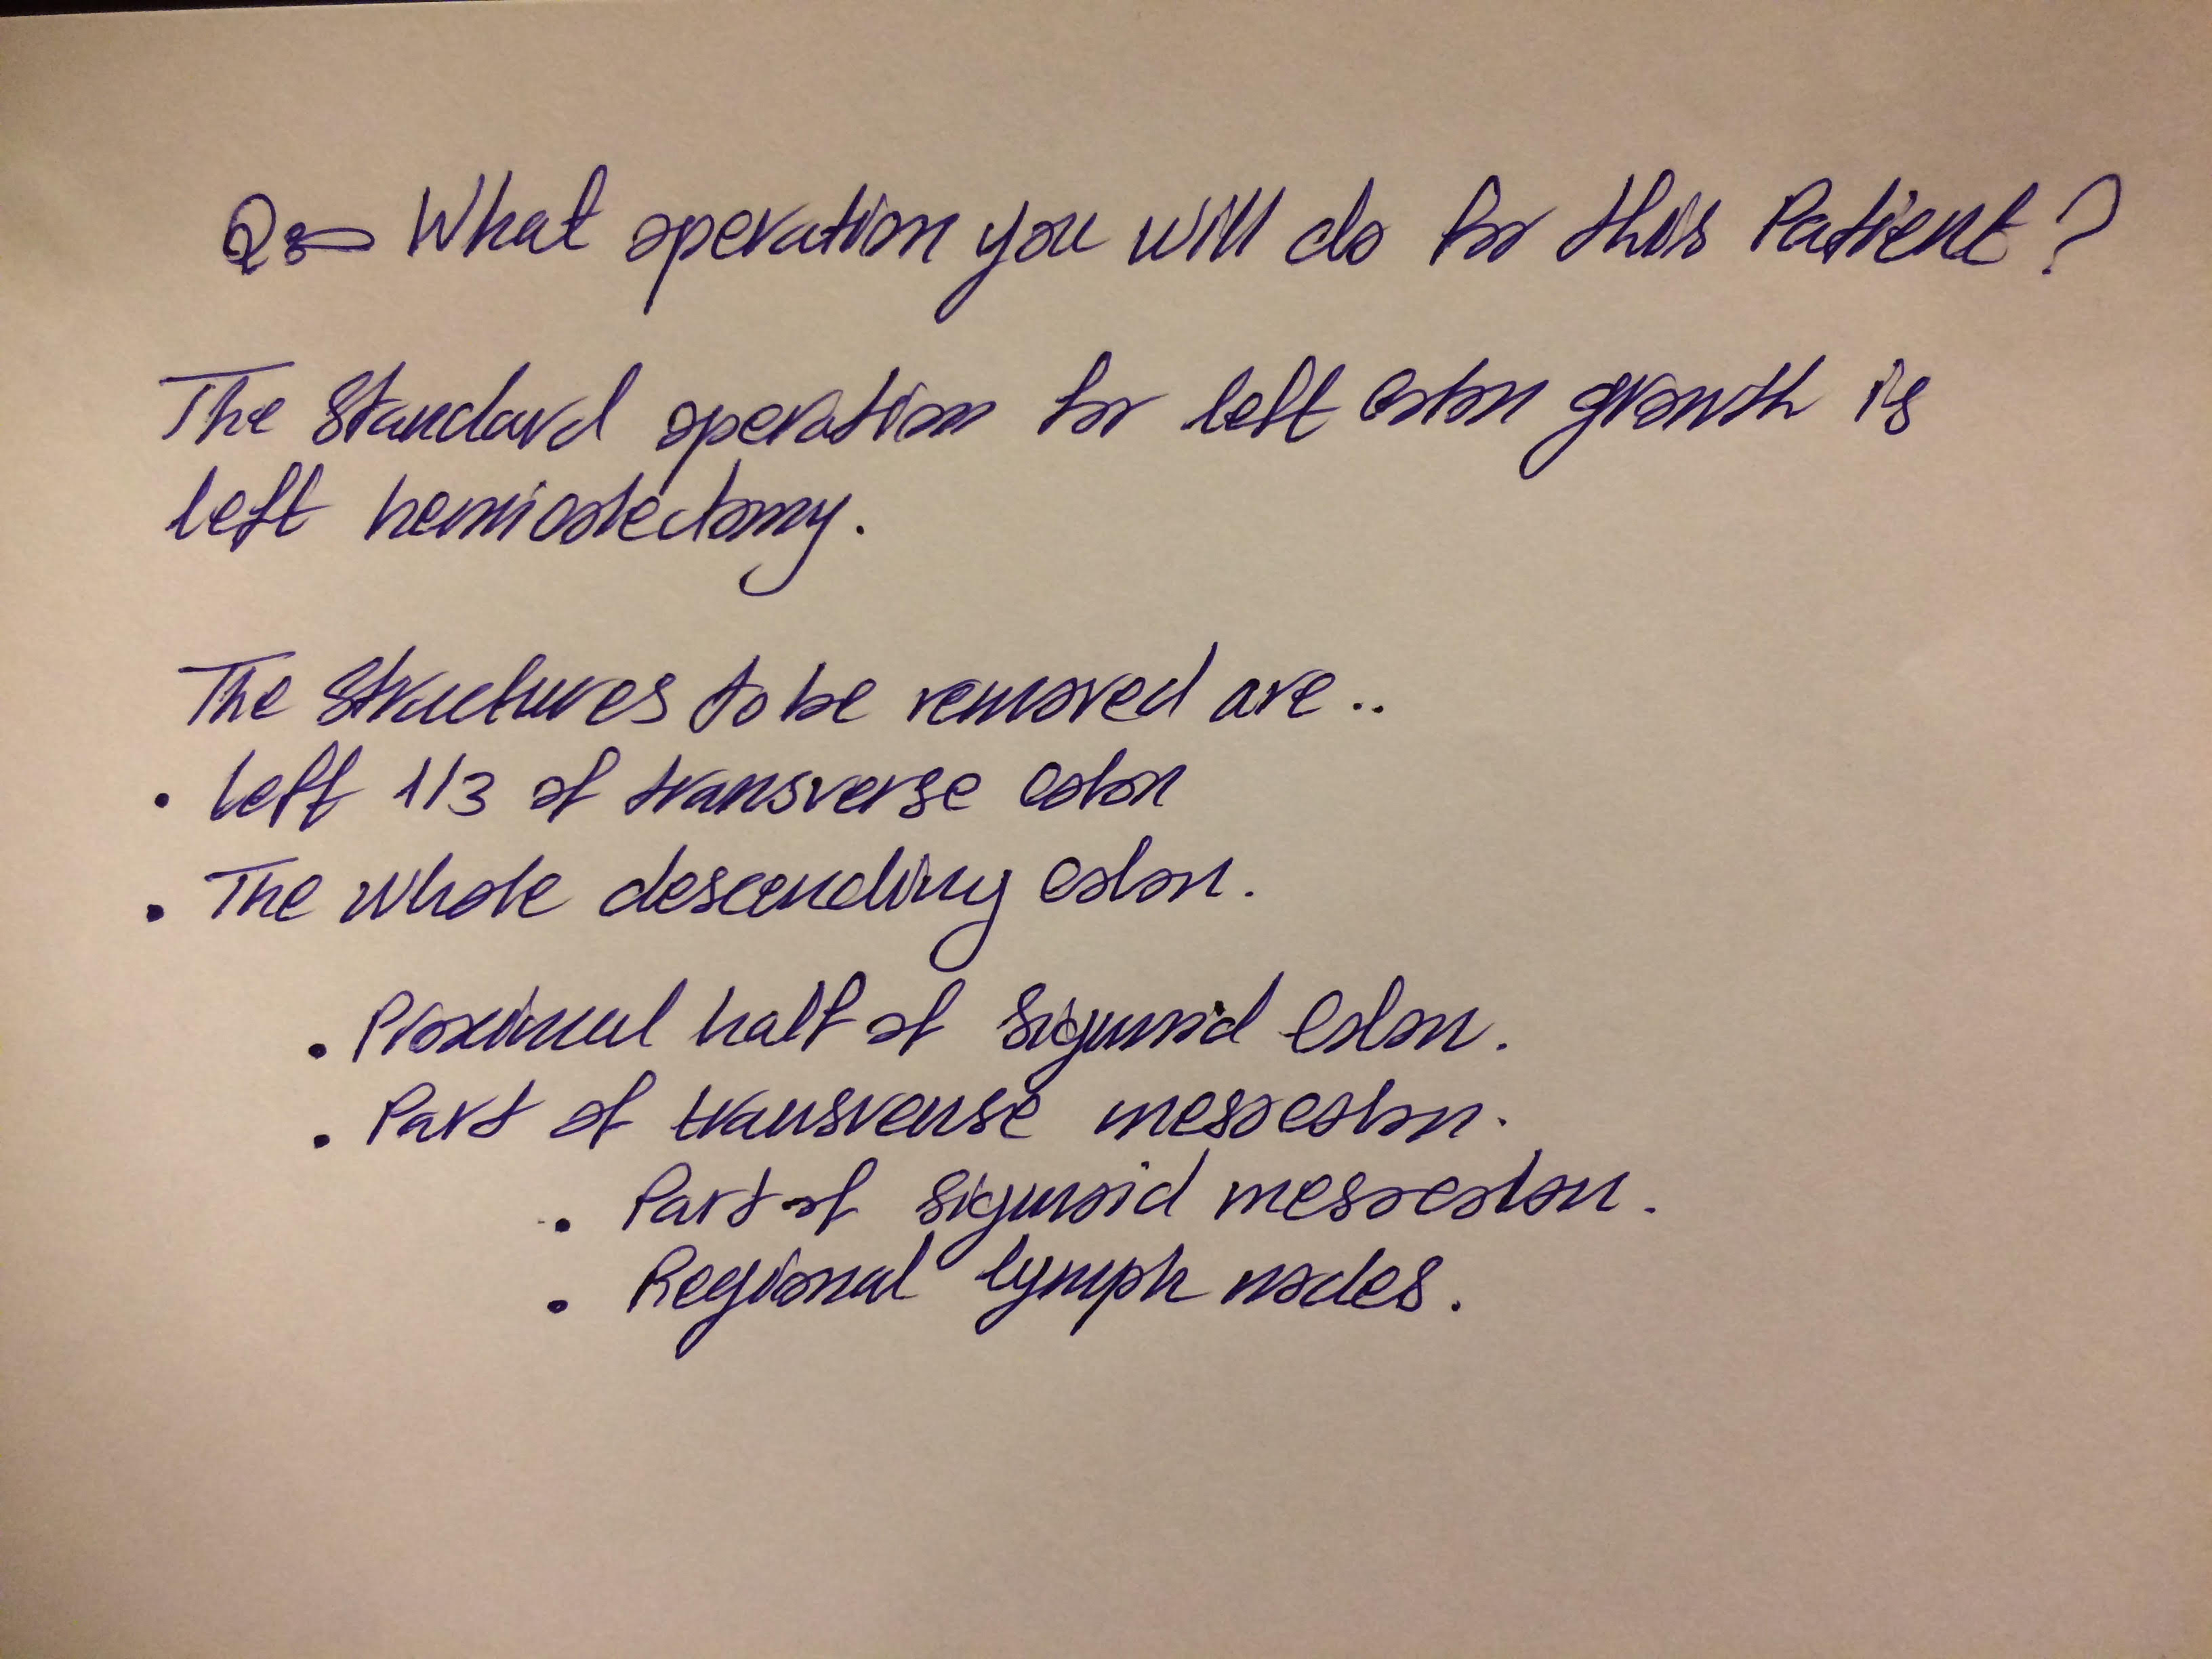 Q:- What operation you will do for this Patient?
The Standard operation for left colon growth is
left hemicolectomy.
The Structures to be removed are..
• Left 1/3 of transverse colon
• The whole descending colon.
• Proximal half of Sigmoid Colon.
• Part of transverse mesocolon.
• Part of Sigmoid mesocolon.
• Regional lymph nodes.